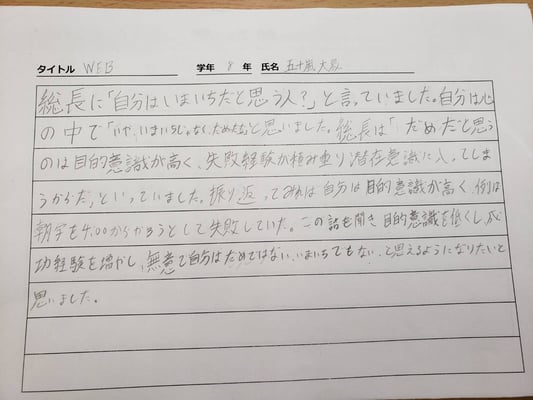 タイトル WEB 学年 8 年 氏名 五十嵐大
総長に「自分はいまいちだと思う人?」と言っていました。自分は心
の中で「いや、いまいちじゃなく、だめだな」と思いました。総長は「だめだと思う
のは目的意識が高く、失敗経験が積み重り潜在意識に入ってしま
うからだ」といっていました。振り返ってみれば自分は目的意識が高く、例えば
朝学を4:00からやろうとして失敗していた。この話を聞き目的意識を低くし、成
功経験を増やし、無意で自分はだめではない、いまいちでもない、と思えるようになりたいと
思いました。